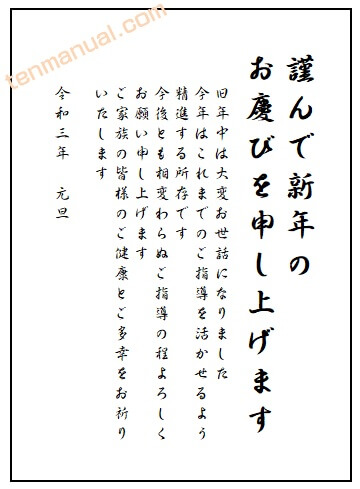 謹んで新年の
お慶びを申し上げます
旧年中は大変お世話になりました
今年はこれまでのご指導を活かせるよう
精進する所存です
今後とも相変わらぬご指導の程よろしく
お願い申し上げます
ご家族の皆様のご健康とご多幸をお祈り
いたします
令和三年 元旦
tenmanual.com